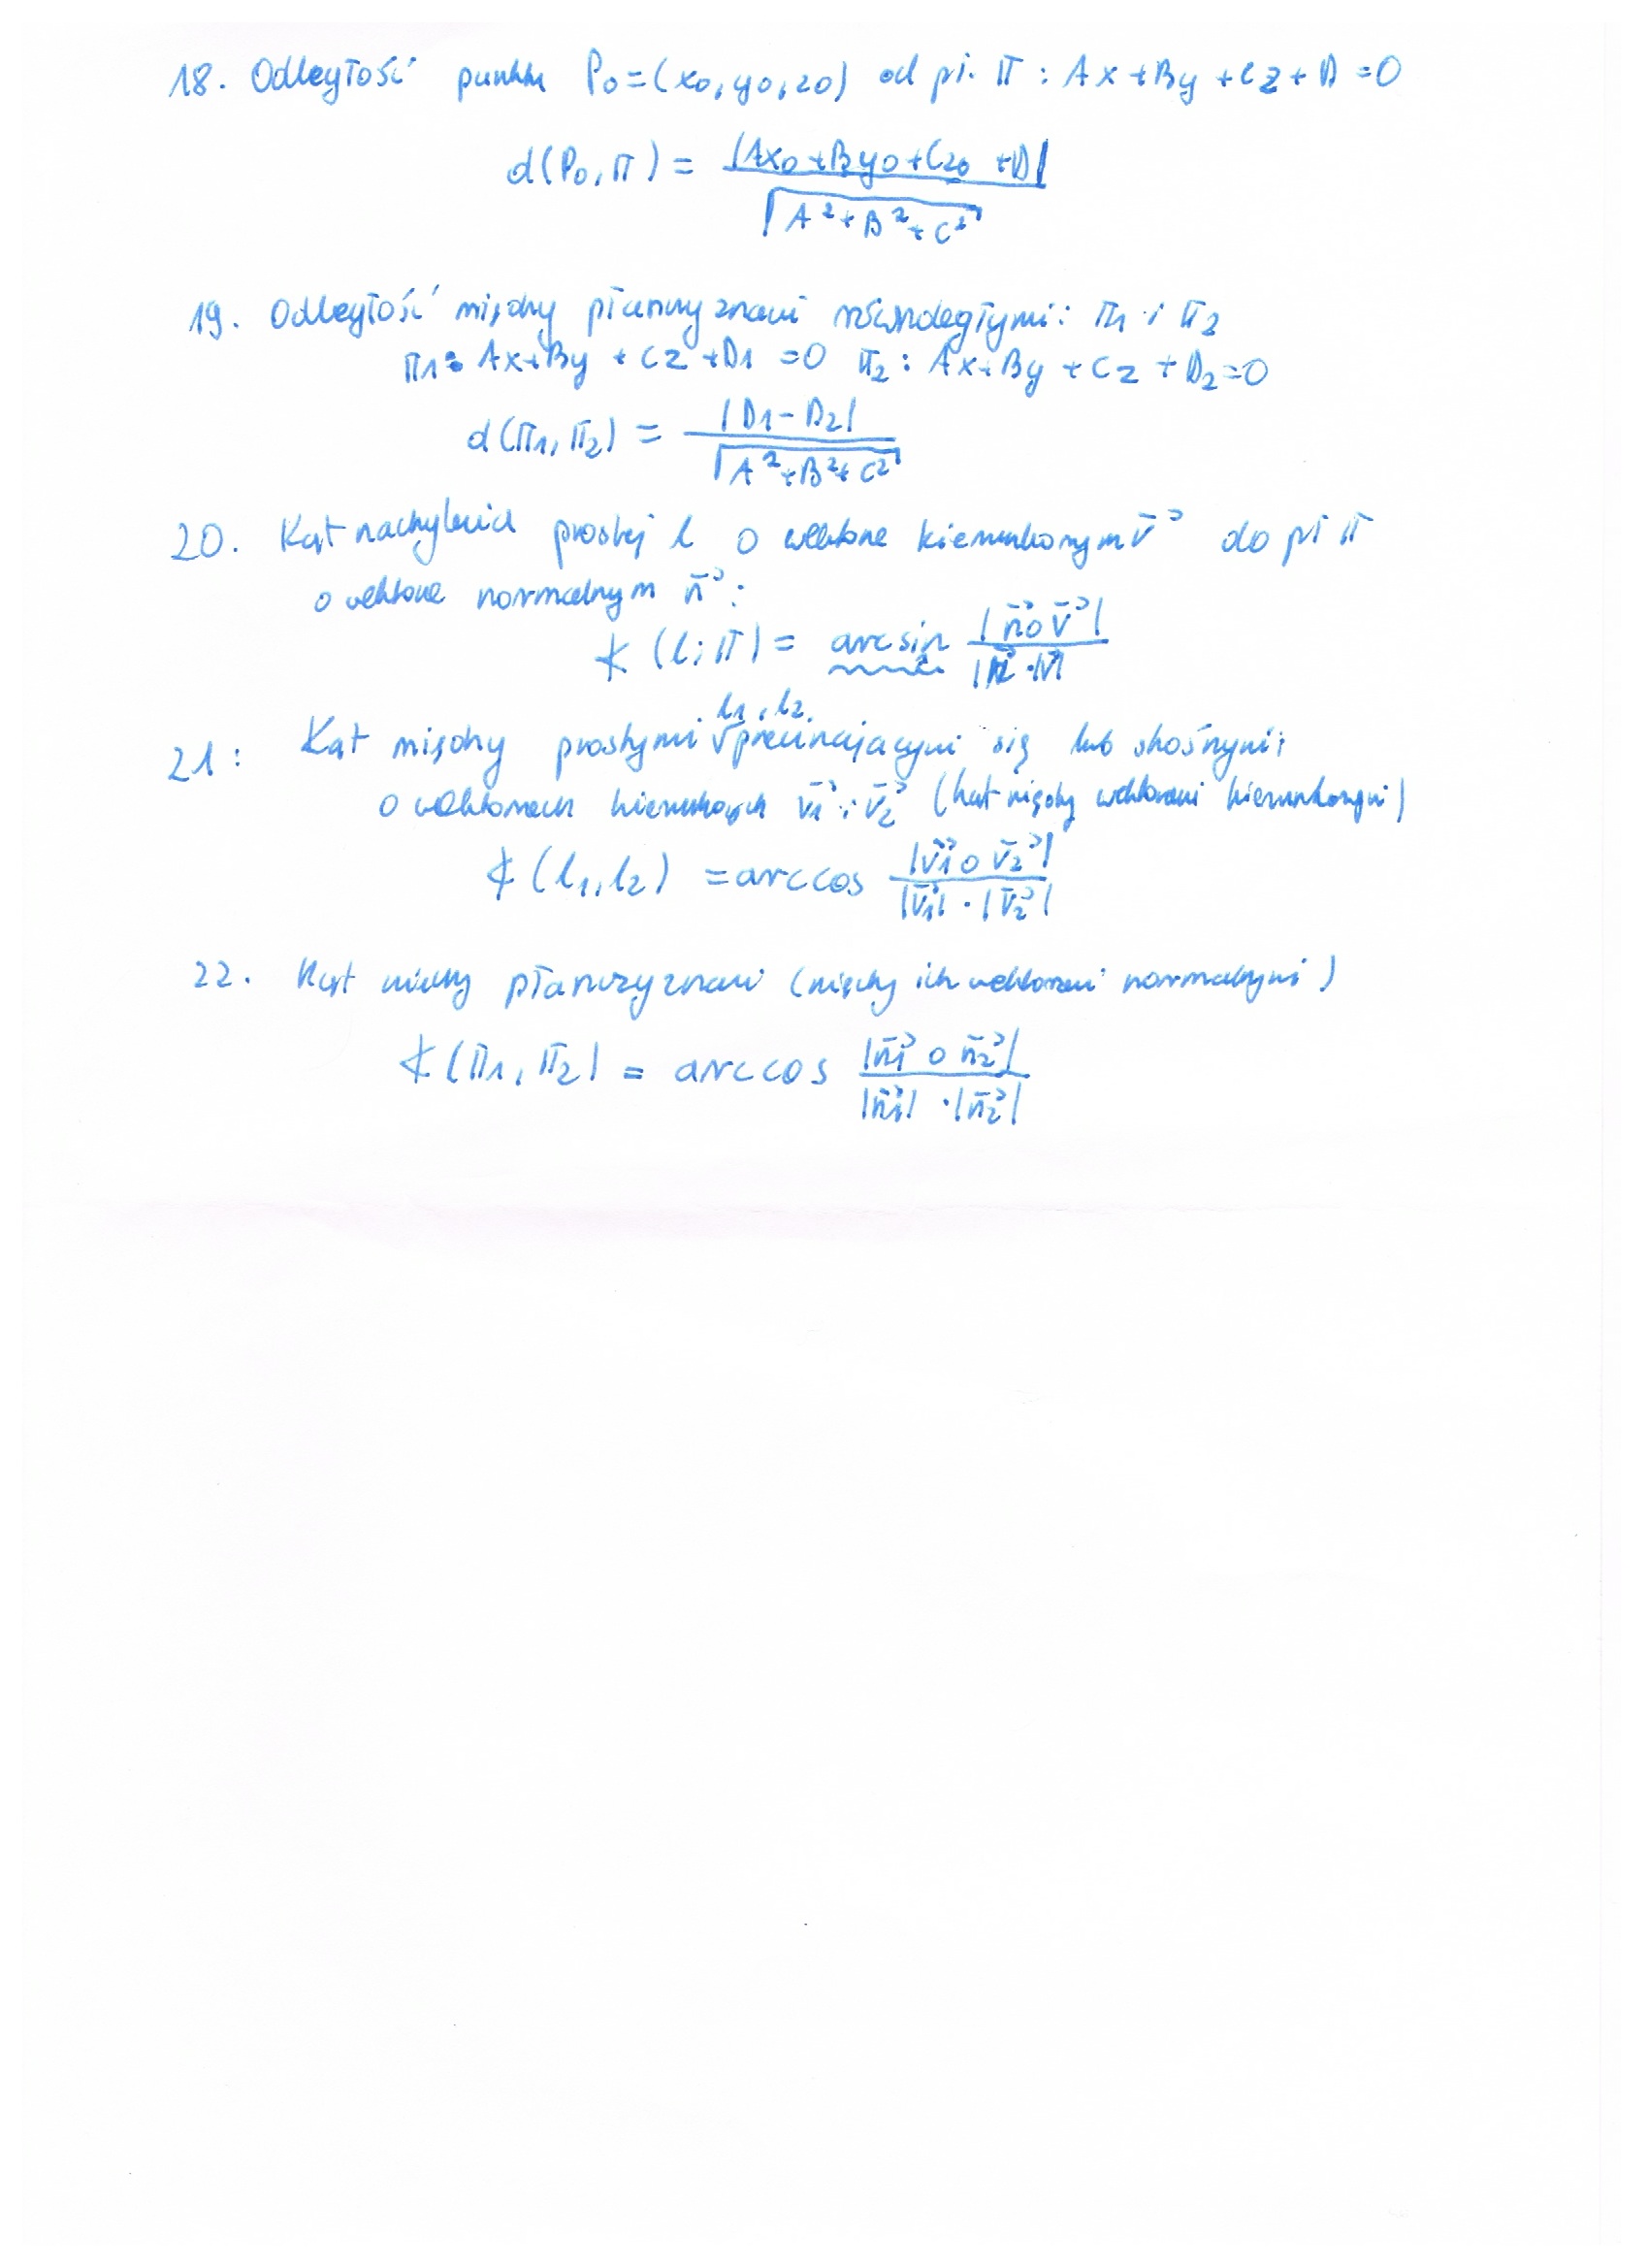 18. Odległość punktu P0=(x0,y0,z0) od pł. π : Ax+By+Cz+D=0
d(P0,π) = |Ax0+By0+Cz0+D| / √A²+B²+C²
19. Odległość między płaszczyznami równoległymi: π1 i π2
π1: Ax+By+Cz+D1=0 π2: Ax+By+Cz+D2=0
d(π1,π2) = |D1-D2| / √A²+B²+C²
20. Kąt nachylenia prostej l o wektorze kierunkowym v⃗ do pł π
o wektorze normalnym n⃗:
∢(l;π) = arcsin |n⃗∘v⃗| / |n⃗|·|v⃗|
l1, l2
21: Kąt między prostymi √ przecinającymi się lub skośnymi;
o wektorach kierunkowych v⃗1 i v⃗2 (kąt między wektorami kierunkowymi)
∢(l1,l2) = arccos |v⃗1∘v⃗2| / |v⃗1|·|v⃗2|
22. Kąt między płaszczyznami (między ich wektorami normalnymi)
∢(π1,π2) = arccos |n⃗1∘n⃗2| / |n⃗1|·|n⃗2|